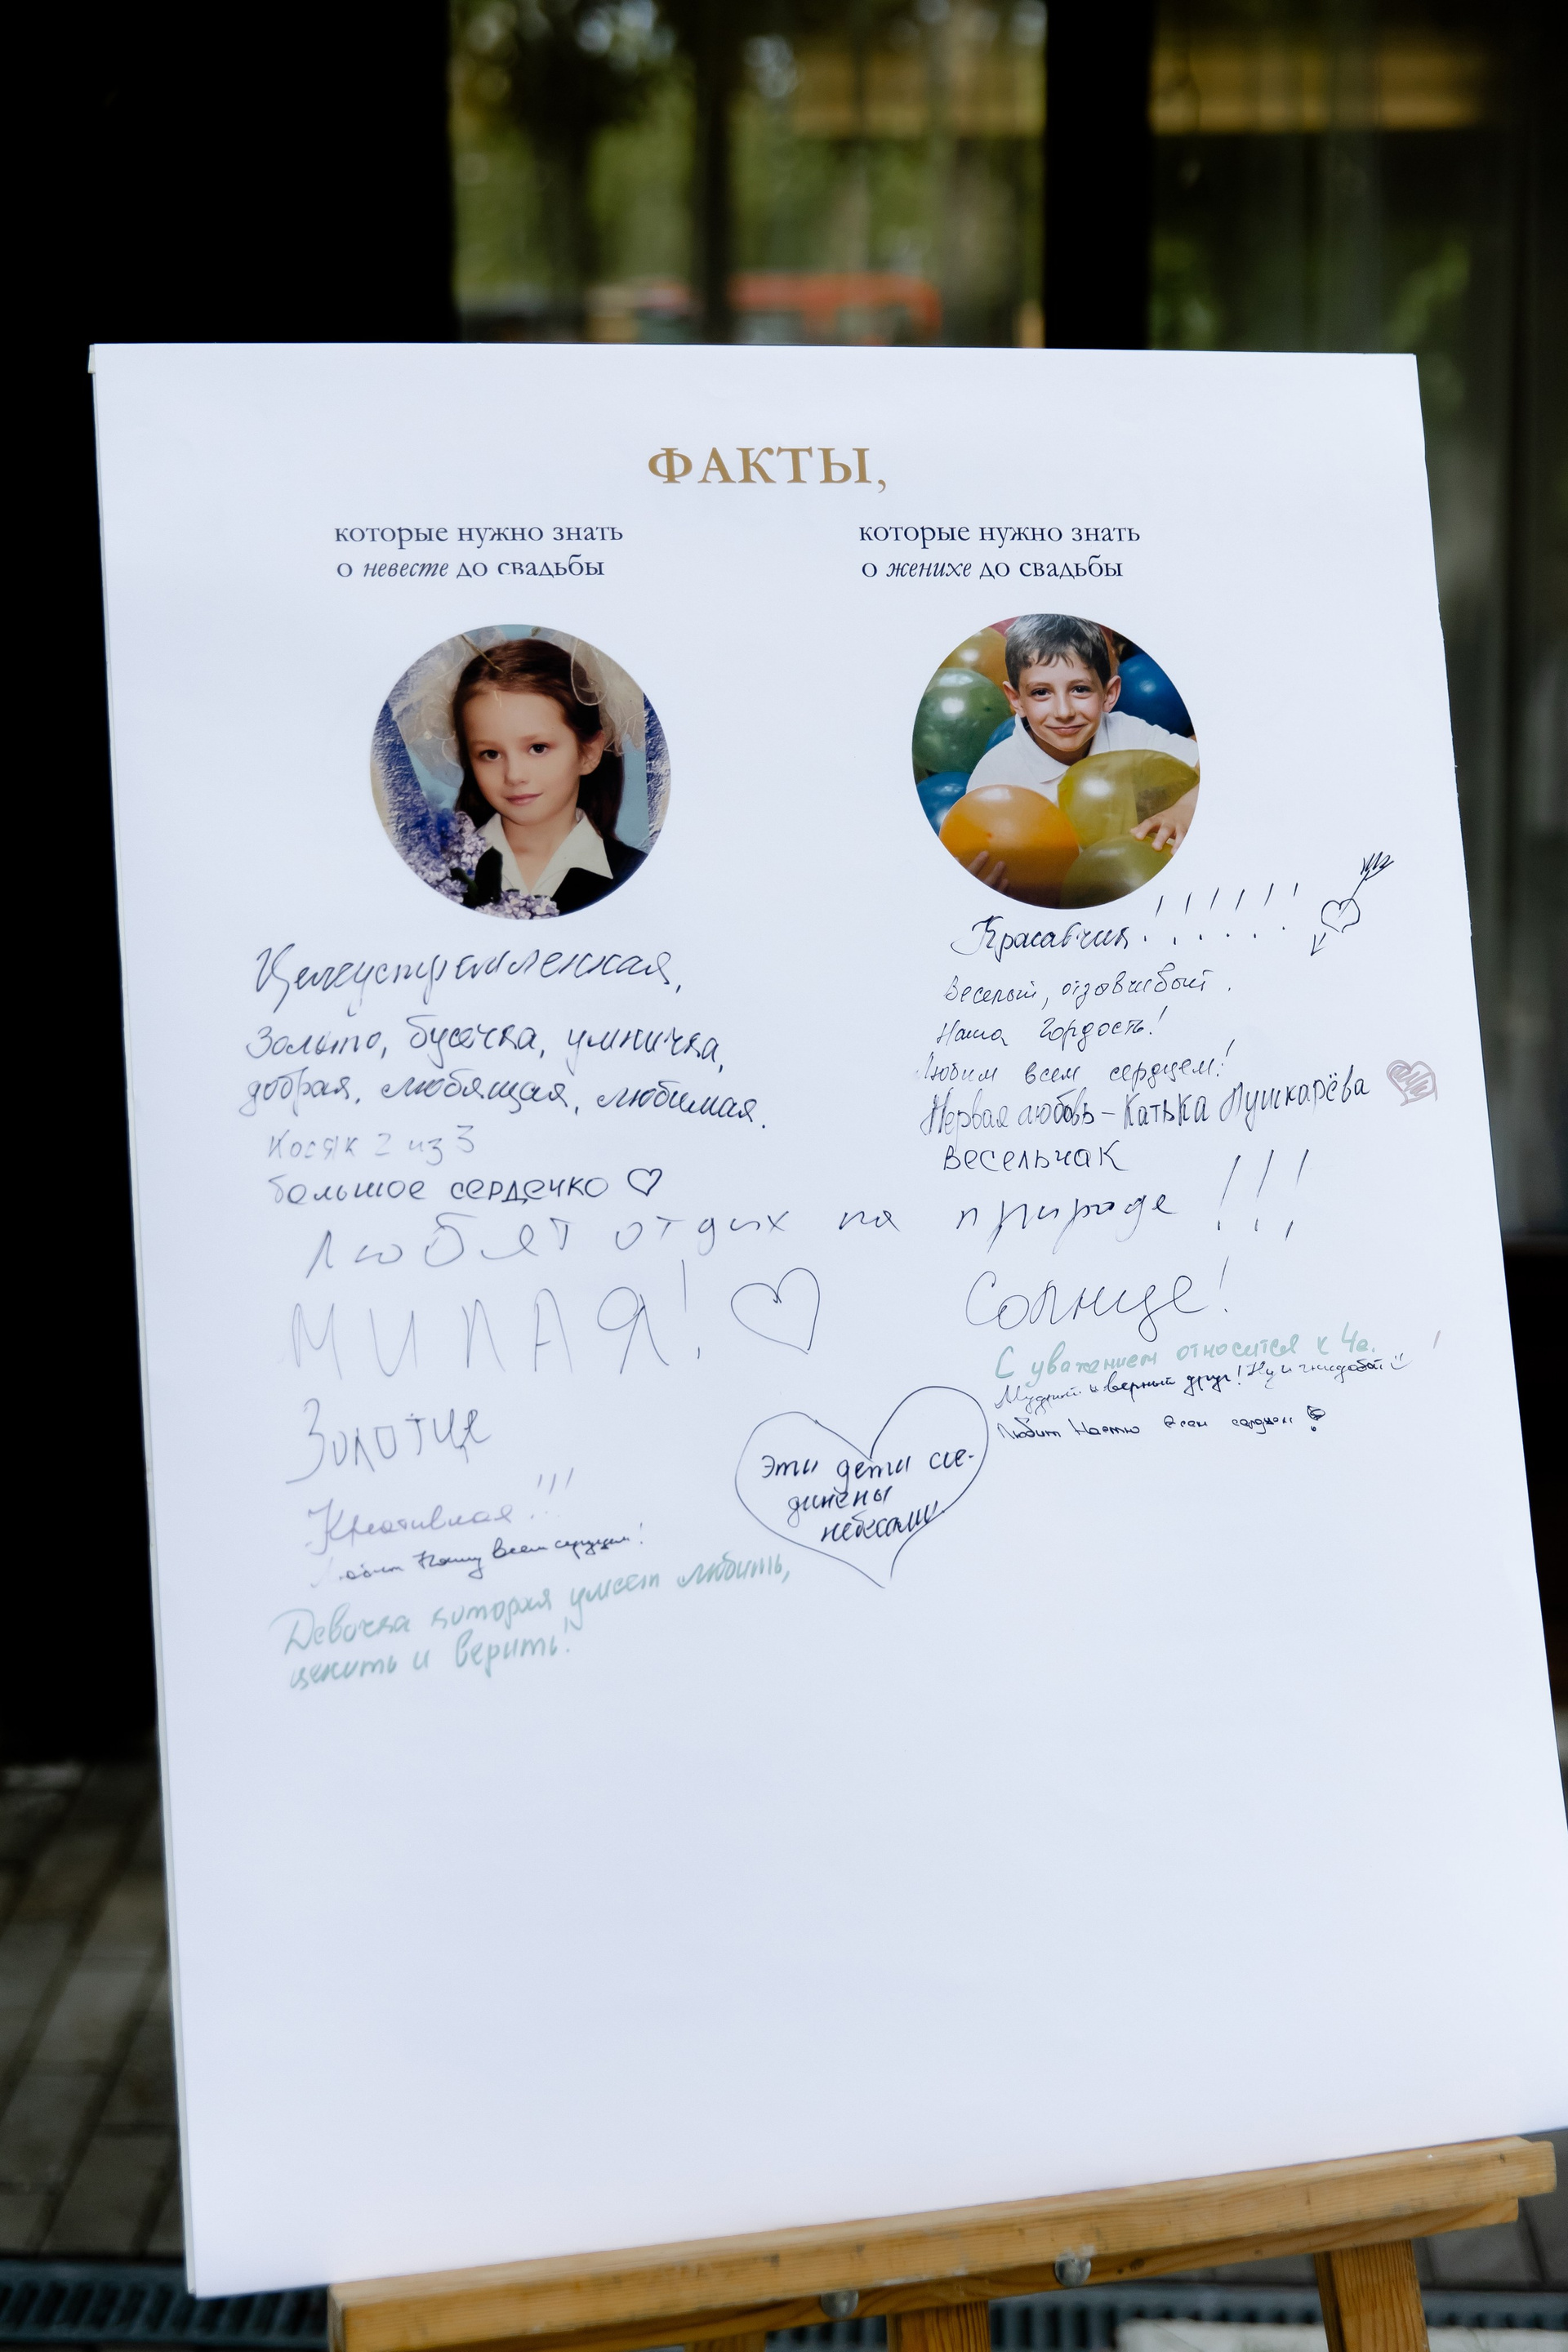 ФАКТЫ,
которые нужно знать
о невесте до свадьбы
которые нужно знать
о женихе до свадьбы
Целеустремленная,
Золото, бусечка, умничка,
добрая, любящая, любимая.
Косяк 2 из 3
большое сердечко ♡
Любят отдых на природе !!!
МИЛАЯ! ♡
Золотце
Креативная!!!
всем сердцем!
Девочка которая умеет любить,
ценить и верить!
Красавчик!!!!!!
Веселый, отзывчивый.
Наша гордость!
Любим всем сердцем!
Первая любовь – Катька Пушкарёва
весельчак
Солнце!
С уважением относится к Че.
Мудрый и верный друг! Ну и
Любит Настю всем сердцем
Эти дети сое-
динены
небесами